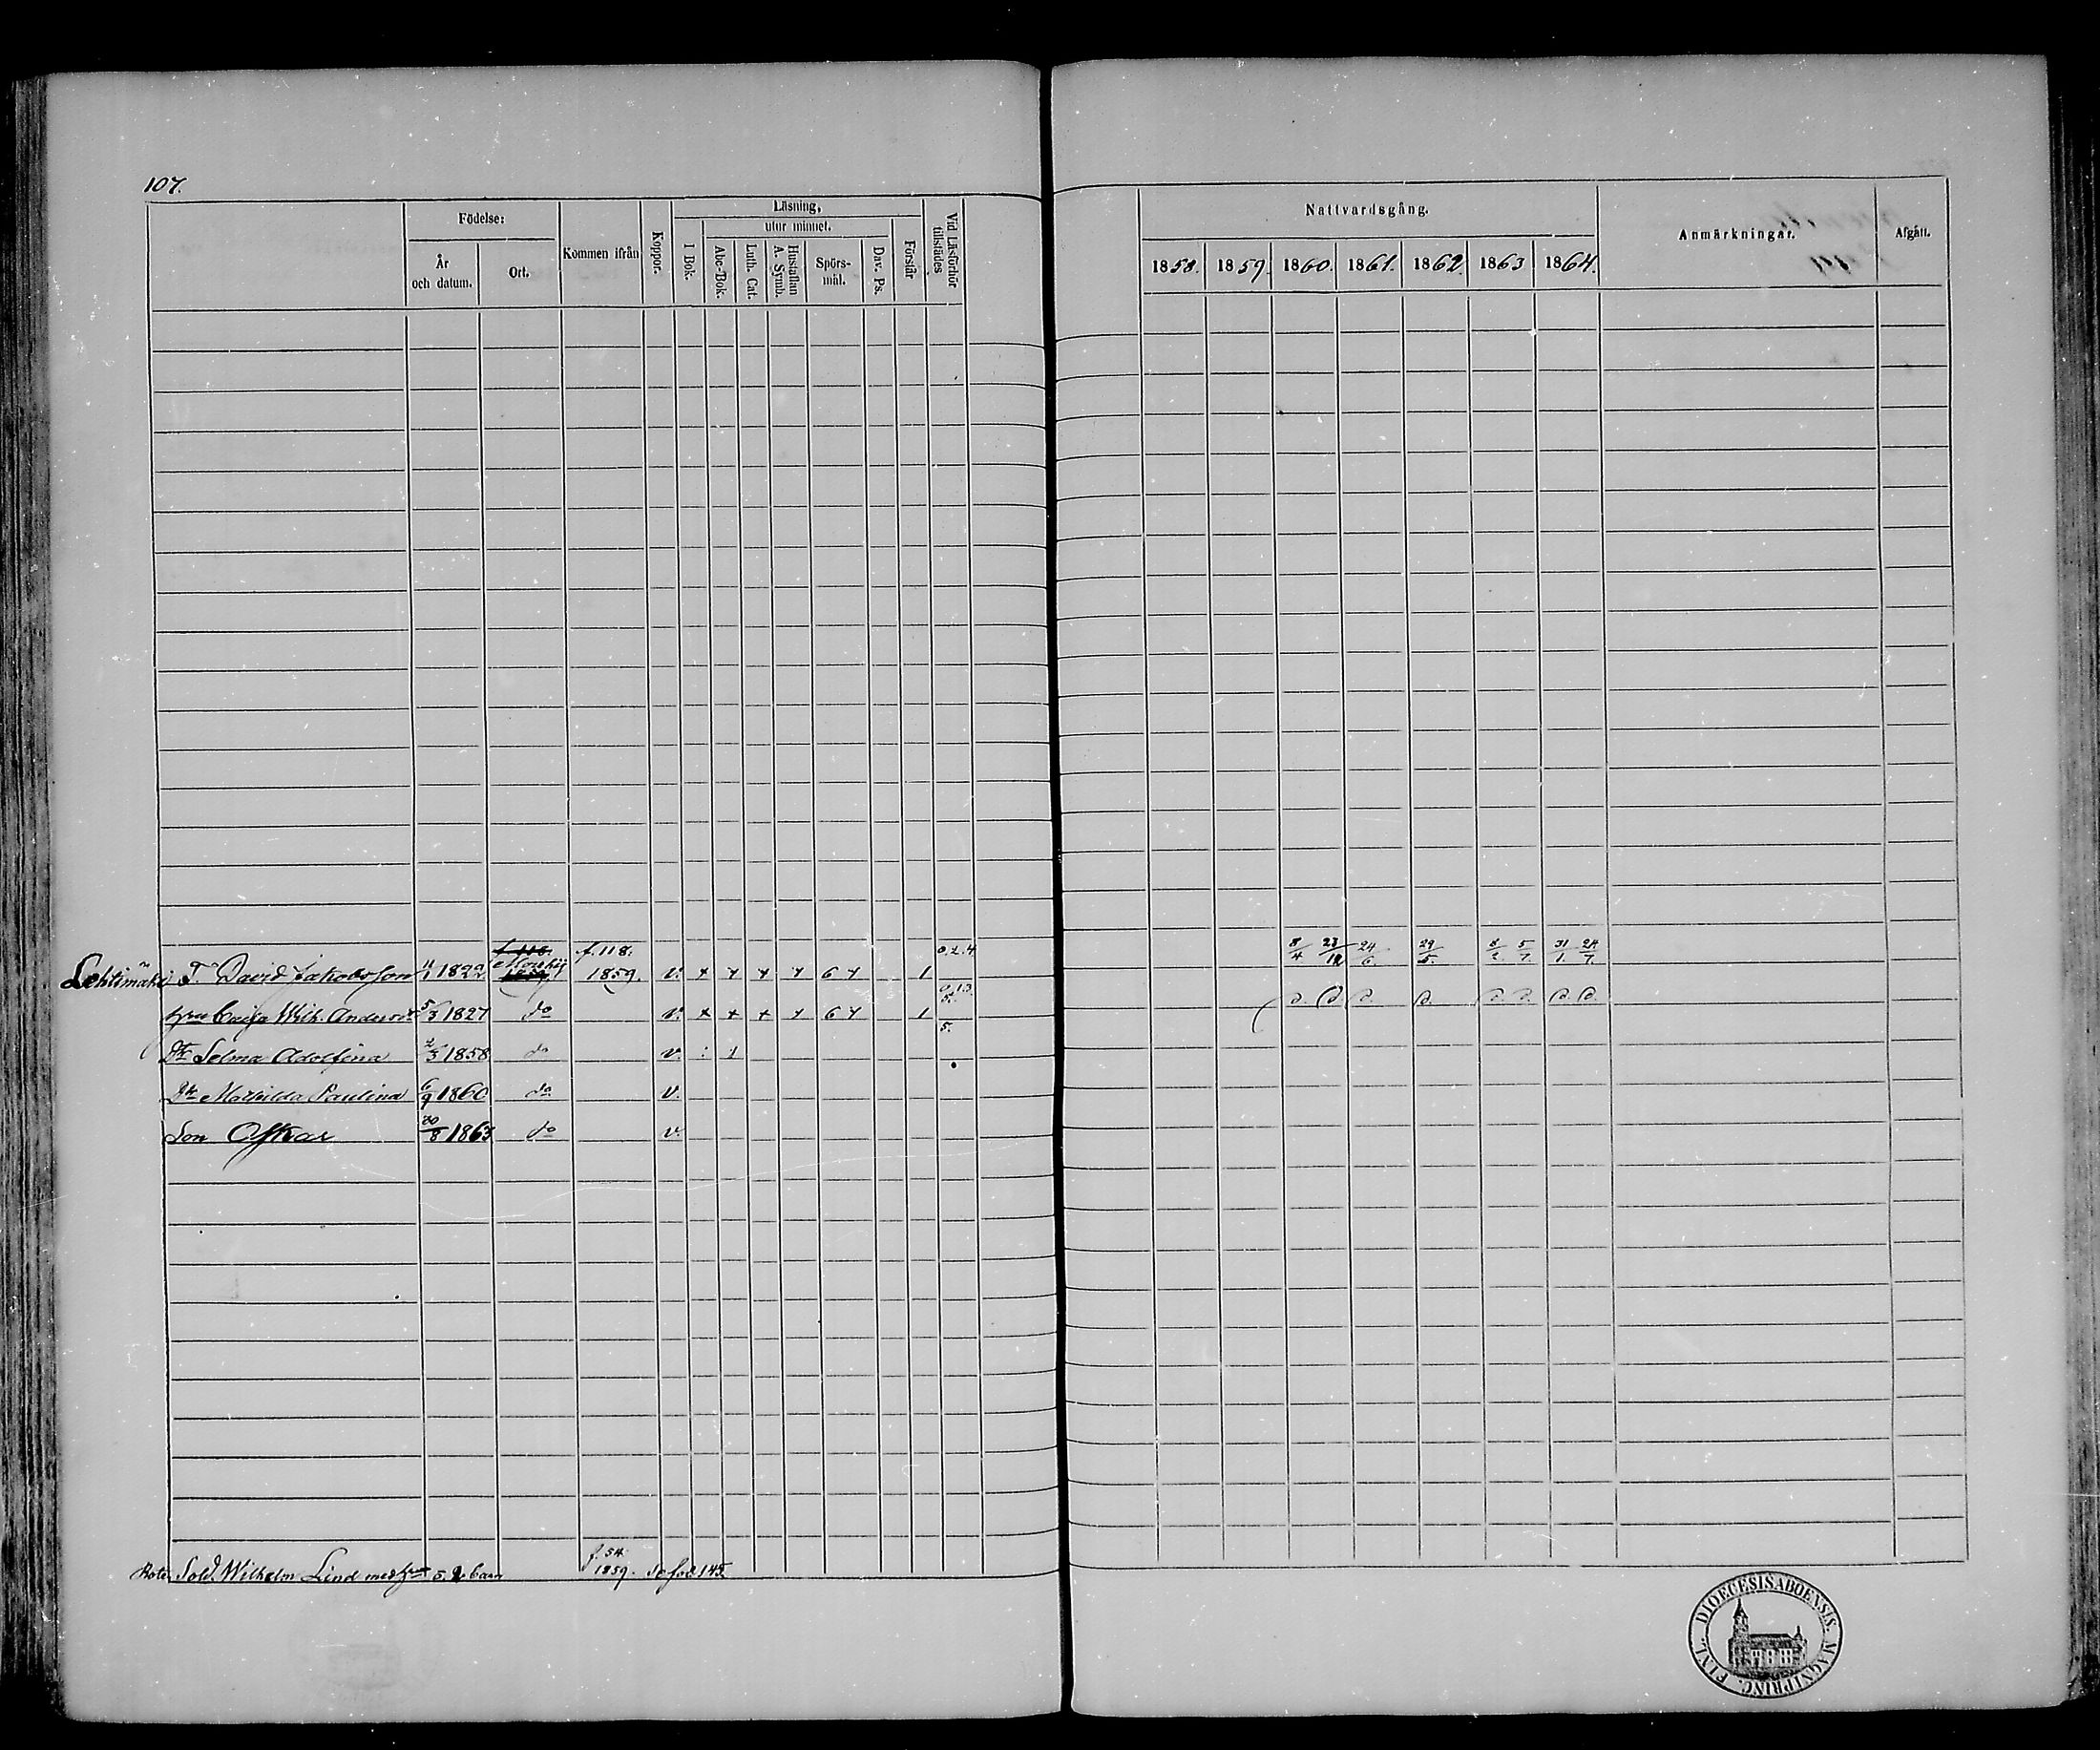 107.
Födelse:
År och datum.
Ort.
Kommen ifrån
Koppor.
Läsning,
I Bok.
utur minnet.
Abc-Bok.
Luth. Cat.
Hustaflan A. Symb.
Spörs-mål.
Dav. Ps.
Förstår
Vid Läsförhör tillstädes
Nattvardsgång.
1858. 1859. 1860. 1861. 1862. 1863 1864.
Anmärkningar.
Afgått.
f. 118. f. 118. 0.2.4 8/4 23/12 24/6. 29/5. 5/7. 31/1. 24/7.
Lehtimäki T. David Jakobsson 11/1 1822 1859. v. x x x x 6 x 1
Hru Caisa Wilh. Andersd 5/3 1827 do v. x x x x 6 x 1
5.
Dtr Selma Adolfina 2/3 1858 do v. : 1
Dtr Mathilda Paulina 6/9 1860 do v.
Son Oskar 30/8 1863 do v.
f. 54.
Rote Sold. Wilhelm Lind med hru o. 2 barn 1859. Se fol 145.
FINL. DIOECESIS ABOENSIS. MAGNI PRINC.